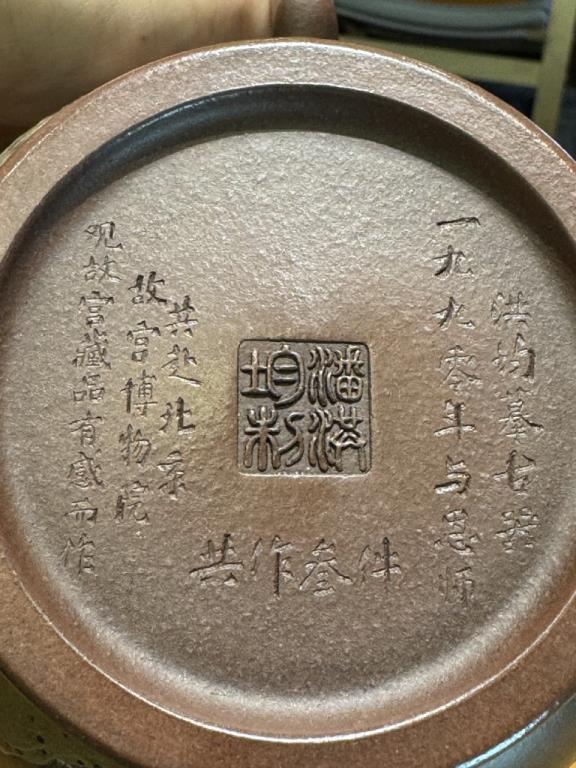 洪均摹古
一九九零年与恩师
潘洪
均制
共赴北京
故宫博物院
观故宫藏品有感而作
共作叁件